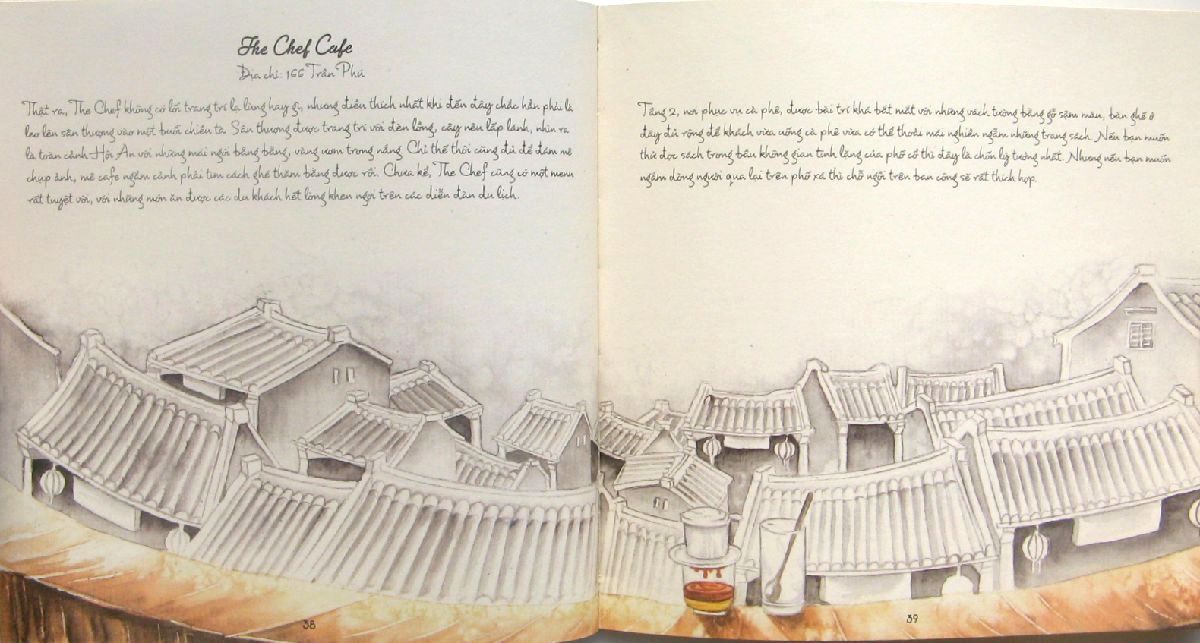 The Chef Cafe
Địa chỉ: 166 Trần Phú
Thật ra, The Chef không có lối trang trí lạ lùng hay gì, nhưng điều thích nhất khi đến đây chắc hẳn phải là
leo lên sân thượng vào một buổi chiều tà. Sân thượng được trang trí với đèn lồng, cây nến lấp lánh, nhìn ra
là toàn cảnh Hội An với những mái ngói băng băng, vàng ươm trong nắng. Chỉ thế thôi cũng đủ để đam mê
chụp ảnh, mê cafe ngắm cảnh phải tìm cách ghé thăm bằng được rồi. Chưa kể, The Chef cũng có một menu
rất tuyệt vời, với những món ăn được các du khách hết lòng khen ngợi trên các diễn đàn du lịch.
Tầng 2, nơi phục vụ cà phê, được bài trí khá bắt mắt với những vách tường bằng gỗ sậm màu, bàn ghế ở
đây đủ rộng để khách vừa uống cà phê vừa có thể thoải mái nghiền ngẫm những trang sách. Nếu bạn muốn
thử đọc sách trong bầu không gian tĩnh lặng của phố cổ thì đây là chốn lý tưởng nhất. Nhưng nếu bạn muốn
ngắm dòng người qua lại trên phố xá thì chỗ ngồi trên ban công sẽ rất thích hợp.
38
39